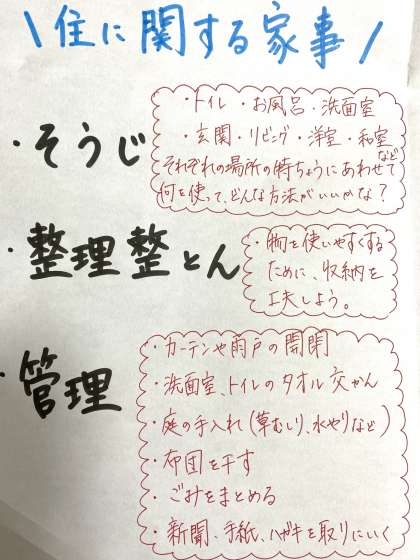 \住に関する家事/
・そうじ
・トイレ・お風呂・洗面室
・玄関・リビング・洋室・和室など
それぞれの場所の特ちょうにあわせて
何を使って、どんな方法がいいかな?
・整理整とん
・物を使いやすくする
ために、収納を
工夫しよう。
・管理
・カーテンや雨戸の開閉
・洗面室、トイレのタオル交かん
・庭の手入れ(草むしり、水やりなど)
・布団を干す
・ごみをまとめる
・新聞、手紙、ハガキを取りにいく